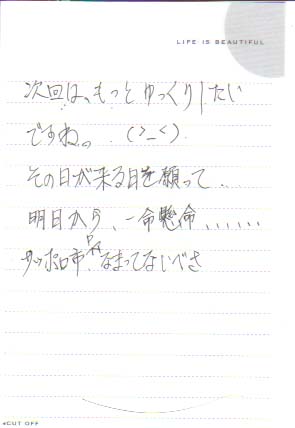 LIFE IS BEAUTIFUL
次回は、もっとゆっくりしたい
ですね。 (>_<)
その日が来る日を願って..
明日から、一命懸命......
サッポロ市、なまってないべさ
CUT OFF